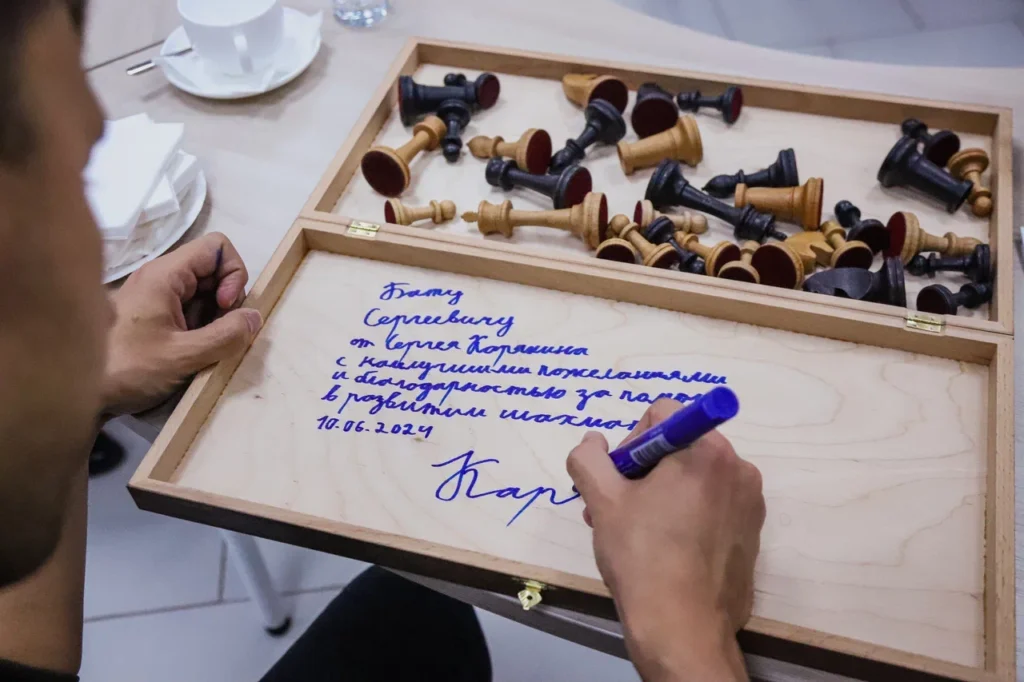 Бату
Сергеевичу
от Сергея Корякина
с наилучшими пожеланиями
и благодарностью за
в развитии
10.06.2024